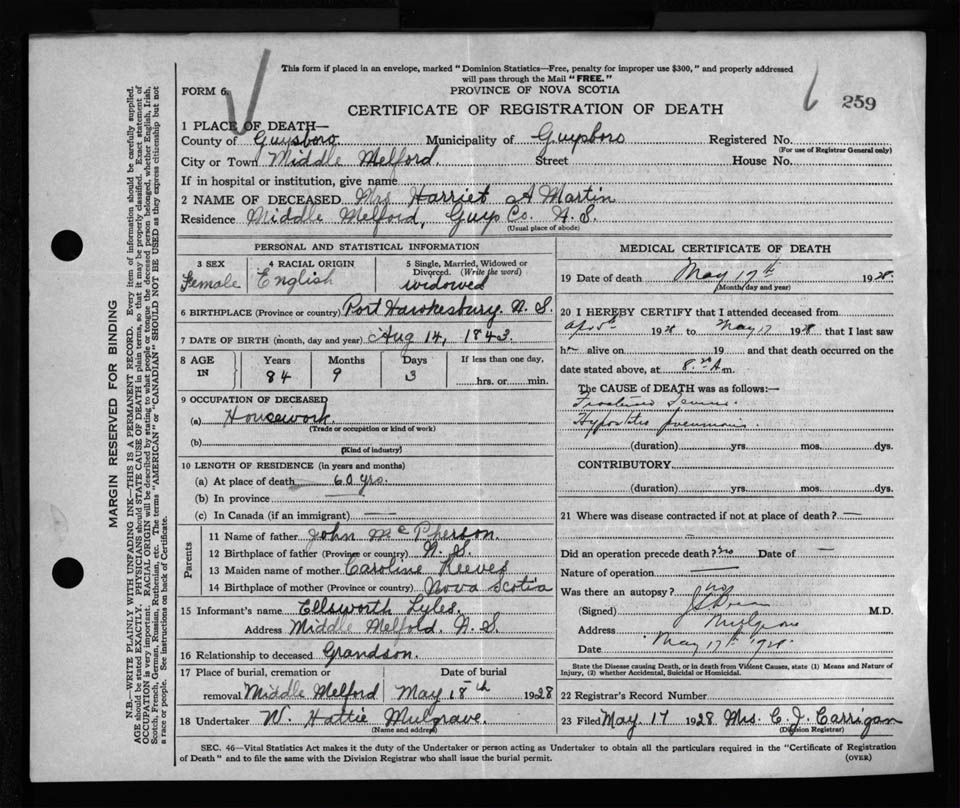 This form if placed in an envelope, marked "Dominion Statistics—Free, penalty for improper use $300," and properly addressed
will pass through the Mail "FREE."
FORM 6
PROVINCE OF NOVA SCOTIA
CERTIFICATE OF REGISTRATION OF DEATH
259
1 PLACE OF DEATH—
County of Guysboro Municipality of Guysboro Registered No.
(For use of Registrar General only)
City or Town Middle Melford. Street House No.
If in hospital or institution, give name
2 NAME OF DECEASED Mrs Harriet A Martin
Residence Middle Melford, Guys Co. N.S.
(Usual place of abode)
PERSONAL AND STATISTICAL INFORMATION
3 SEX Female
4 RACIAL ORIGIN English
5 Single, Married, Widowed or Divorced. (Write the word) widowed
6 BIRTHPLACE (Province or country) Port Hawkesbury. N. S.
7 DATE OF BIRTH (month, day and year) Aug 14, 1843.
8 AGE IN Years 84 Months 9 Days 3 If less than one day, hrs. or min.
9 OCCUPATION OF DECEASED
(a) Housework.
(Trade or occupation or kind of work)
(b)
(Kind of industry)
10 LENGTH OF RESIDENCE (in years and months)
(a) At place of death 60 yrs.
(b) In province —
(c) In Canada (if an immigrant) —
Parents
11 Name of father John McPherson.
12 Birthplace of father (Province or country) N. S.
13 Maiden name of mother Caroline Reeves
14 Birthplace of mother (Province or country) Nova Scotia
15 Informant's name Ellsworth Lyles.
Address Middle Melford. N.S.
16 Relationship to deceased Grandson.
17 Place of burial, cremation or removal Middle Melford
Date of burial May 18th 1928
18 Undertaker W. Hattie Mulgrave.
(Name and address)
MEDICAL CERTIFICATE OF DEATH
19 Date of death May 17th 1928.
(Month, day and year)
20 I HEREBY CERTIFY that I attended deceased from
Apr 5th 1928 to May 17 1928 that I last saw
h alive on 19 and that death occurred on the
date stated above, at 8. m.
The CAUSE of DEATH was as follows:—
Fractured Femur.
Hypostatic pneumonia.
(duration) yrs. mos. dys.
CONTRIBUTORY
(duration) yrs. mos. dys.
21 Where was disease contracted if not at place of death? —
Did an operation precede death? no Date of —
Nature of operation —
Was there an autopsy? no
(Signed) M.D.
Address Mulgrave
Date May 17th 1928.
State the Disease causing Death, or in death from Violent Causes, state (1) Means and Nature of
Injury, (2) whether Accidental, Suicidal or Homicidal.
22 Registrar's Record Number
23 Filed May 17 1928 Mrs. C. J. Carrigan
(Division Registrar)
SEC. 46—Vital Statistics Act makes it the duty of the Undertaker or person acting as Undertaker to obtain all the particulars required in the "Certificate of Registration
of Death" and to file the same with the Division Registrar who shall issue the burial permit.
(OVER)
MARGIN RESERVED FOR BINDING
N.B.—WRITE PLAINLY WITH UNFADING INK—THIS IS A PERMANENT RECORD. Every item of information should be carefully supplied.
AGE should be stated EXACTLY. PHYSICIANS should STATE CAUSE OF DEATH in plain terms, so that it may be properly classified. Exact statement of
OCCUPATION is very important. RACIAL ORIGIN will be described by stating to what people or tongue the deceased person belonged, whether English, Irish,
Scotch, French, German, Russian, Ruthenian, etc. The terms "AMERICAN" or "CANADIAN" SHOULD NOT BE USED as they express citizenship but not
a race or people. See instructions on back of Certificate.